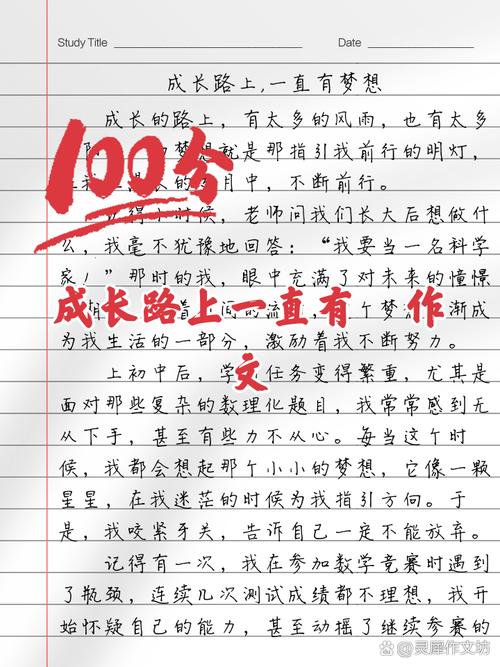 Study Title
Date
成长路上,一直有梦想
成长的路上，有太多的风雨，也有太多
梦想就是那指引我前行的明灯，
月中，不断前行。
100分
得小时候，老师问我们长大后想做什
么，我毫不犹豫地回答：“我要当一名科学
家！”那时的我，眼中充满了对未来的憧憬
成长路上一直有 作
文
个梦 渐成
为我生活的一部分，激励着我不断努力。
上初中后，学 任务变得繁重，尤其是
面对那些复杂的数理化题目，我常常感到无
从下手，甚至有些力不从心。每当这个时
候，我都会想起那个小小的梦想，它像一颗
星星，在我迷茫的时候为我指引方向。于
是，我咬紧牙关，告诉自己一定不能放弃。
记得有一次，我在参加数学竞赛时遇到
了瓶颈，连续几次测试成绩都不理想，我开
始怀疑自己的能力，甚至动摇了继续参赛的
@灵犀作文坊